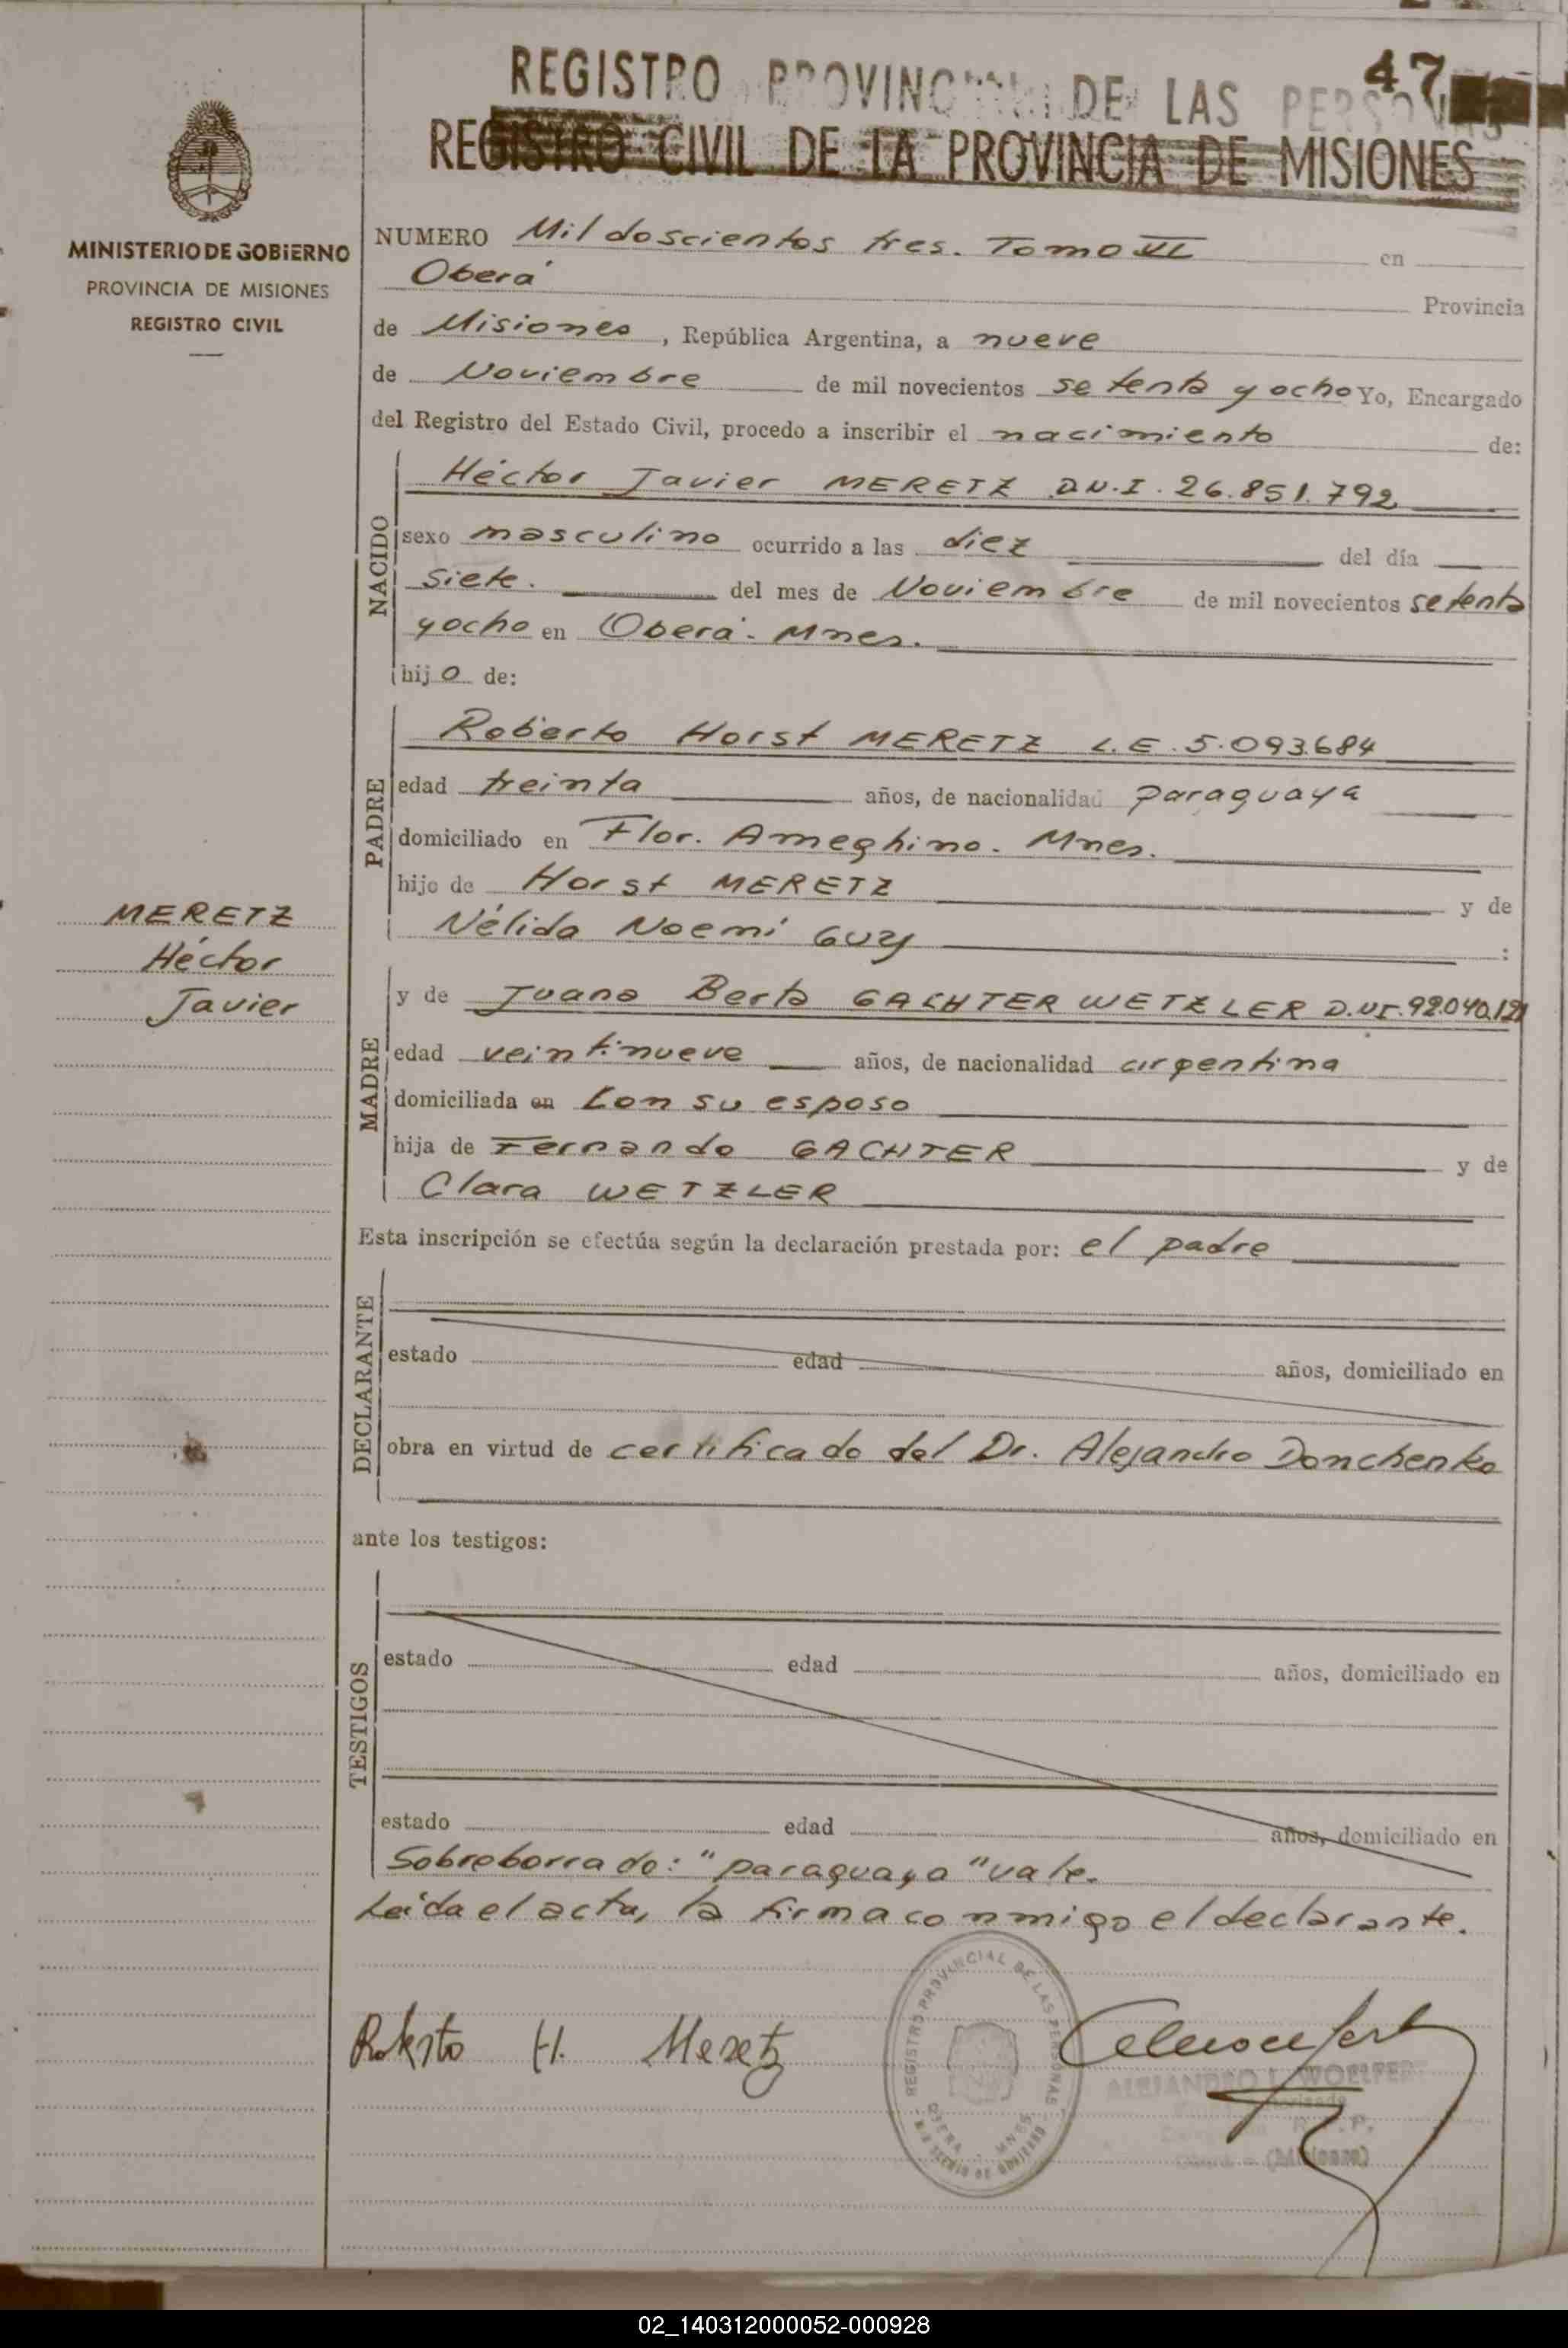 47
REGISTRO PROVINCIAL DE LAS PERSONAS
REGISTRO CIVIL DE LA PROVINCIA DE MISIONES
MINISTERIO DE GOBIERNO
PROVINCIA DE MISIONES
REGISTRO CIVIL
NUMERO Mil doscientos tres. Tomo VI en
Oberá Provincia
de Misiones, República Argentina, a nueve
de Noviembre de mil novecientos setenta y ocho Yo, Encargado
del Registro del Estado Civil, procedo a inscribir el nacimiento de:
NACIDO
Héctor Javier MERETZ D.N.I. 26.851.792
sexo masculino ocurrido a las diez del día
siete. del mes de Noviembre de mil novecientos setenta
y ocho en Oberá - Mnes.
hijo de:
PADRE
Roberto Horst MERETZ L.E. 5.093.684
edad treinta años, de nacionalidad paraguaya
domiciliado en Flor. Ameghino - Mnes.
hijo de Horst MERETZ y de
Nélida Noemí GUY :
MERETZ
Héctor
Javier
MADRE
y de Juana Berta GACHTER WETZLER D.N.I. 92.040.121
edad veintinueve años, de nacionalidad argentina
domiciliada en Con su esposo
hija de Fernando GACHTER y de
Clara WETZLER
Esta inscripción se efectúa según la declaración prestada por: el padre
DECLARANTE
estado edad años, domiciliado en
obra en virtud de certificado del Dr. Alejandro Donchenko
ante los testigos:
TESTIGOS
estado edad años, domiciliado en
estado edad años, domiciliado en
Sobreborrado: "paraguaya" vale.
Leída el acta, la firma conmigo el declarante.
Roberto H. Meretz
REGISTRO PROVINCIAL DE LAS PERSONAS
OBERA - MNES.
ALEJANDRO L. WOELFERT
(Misiones)
02_140312000052-000928